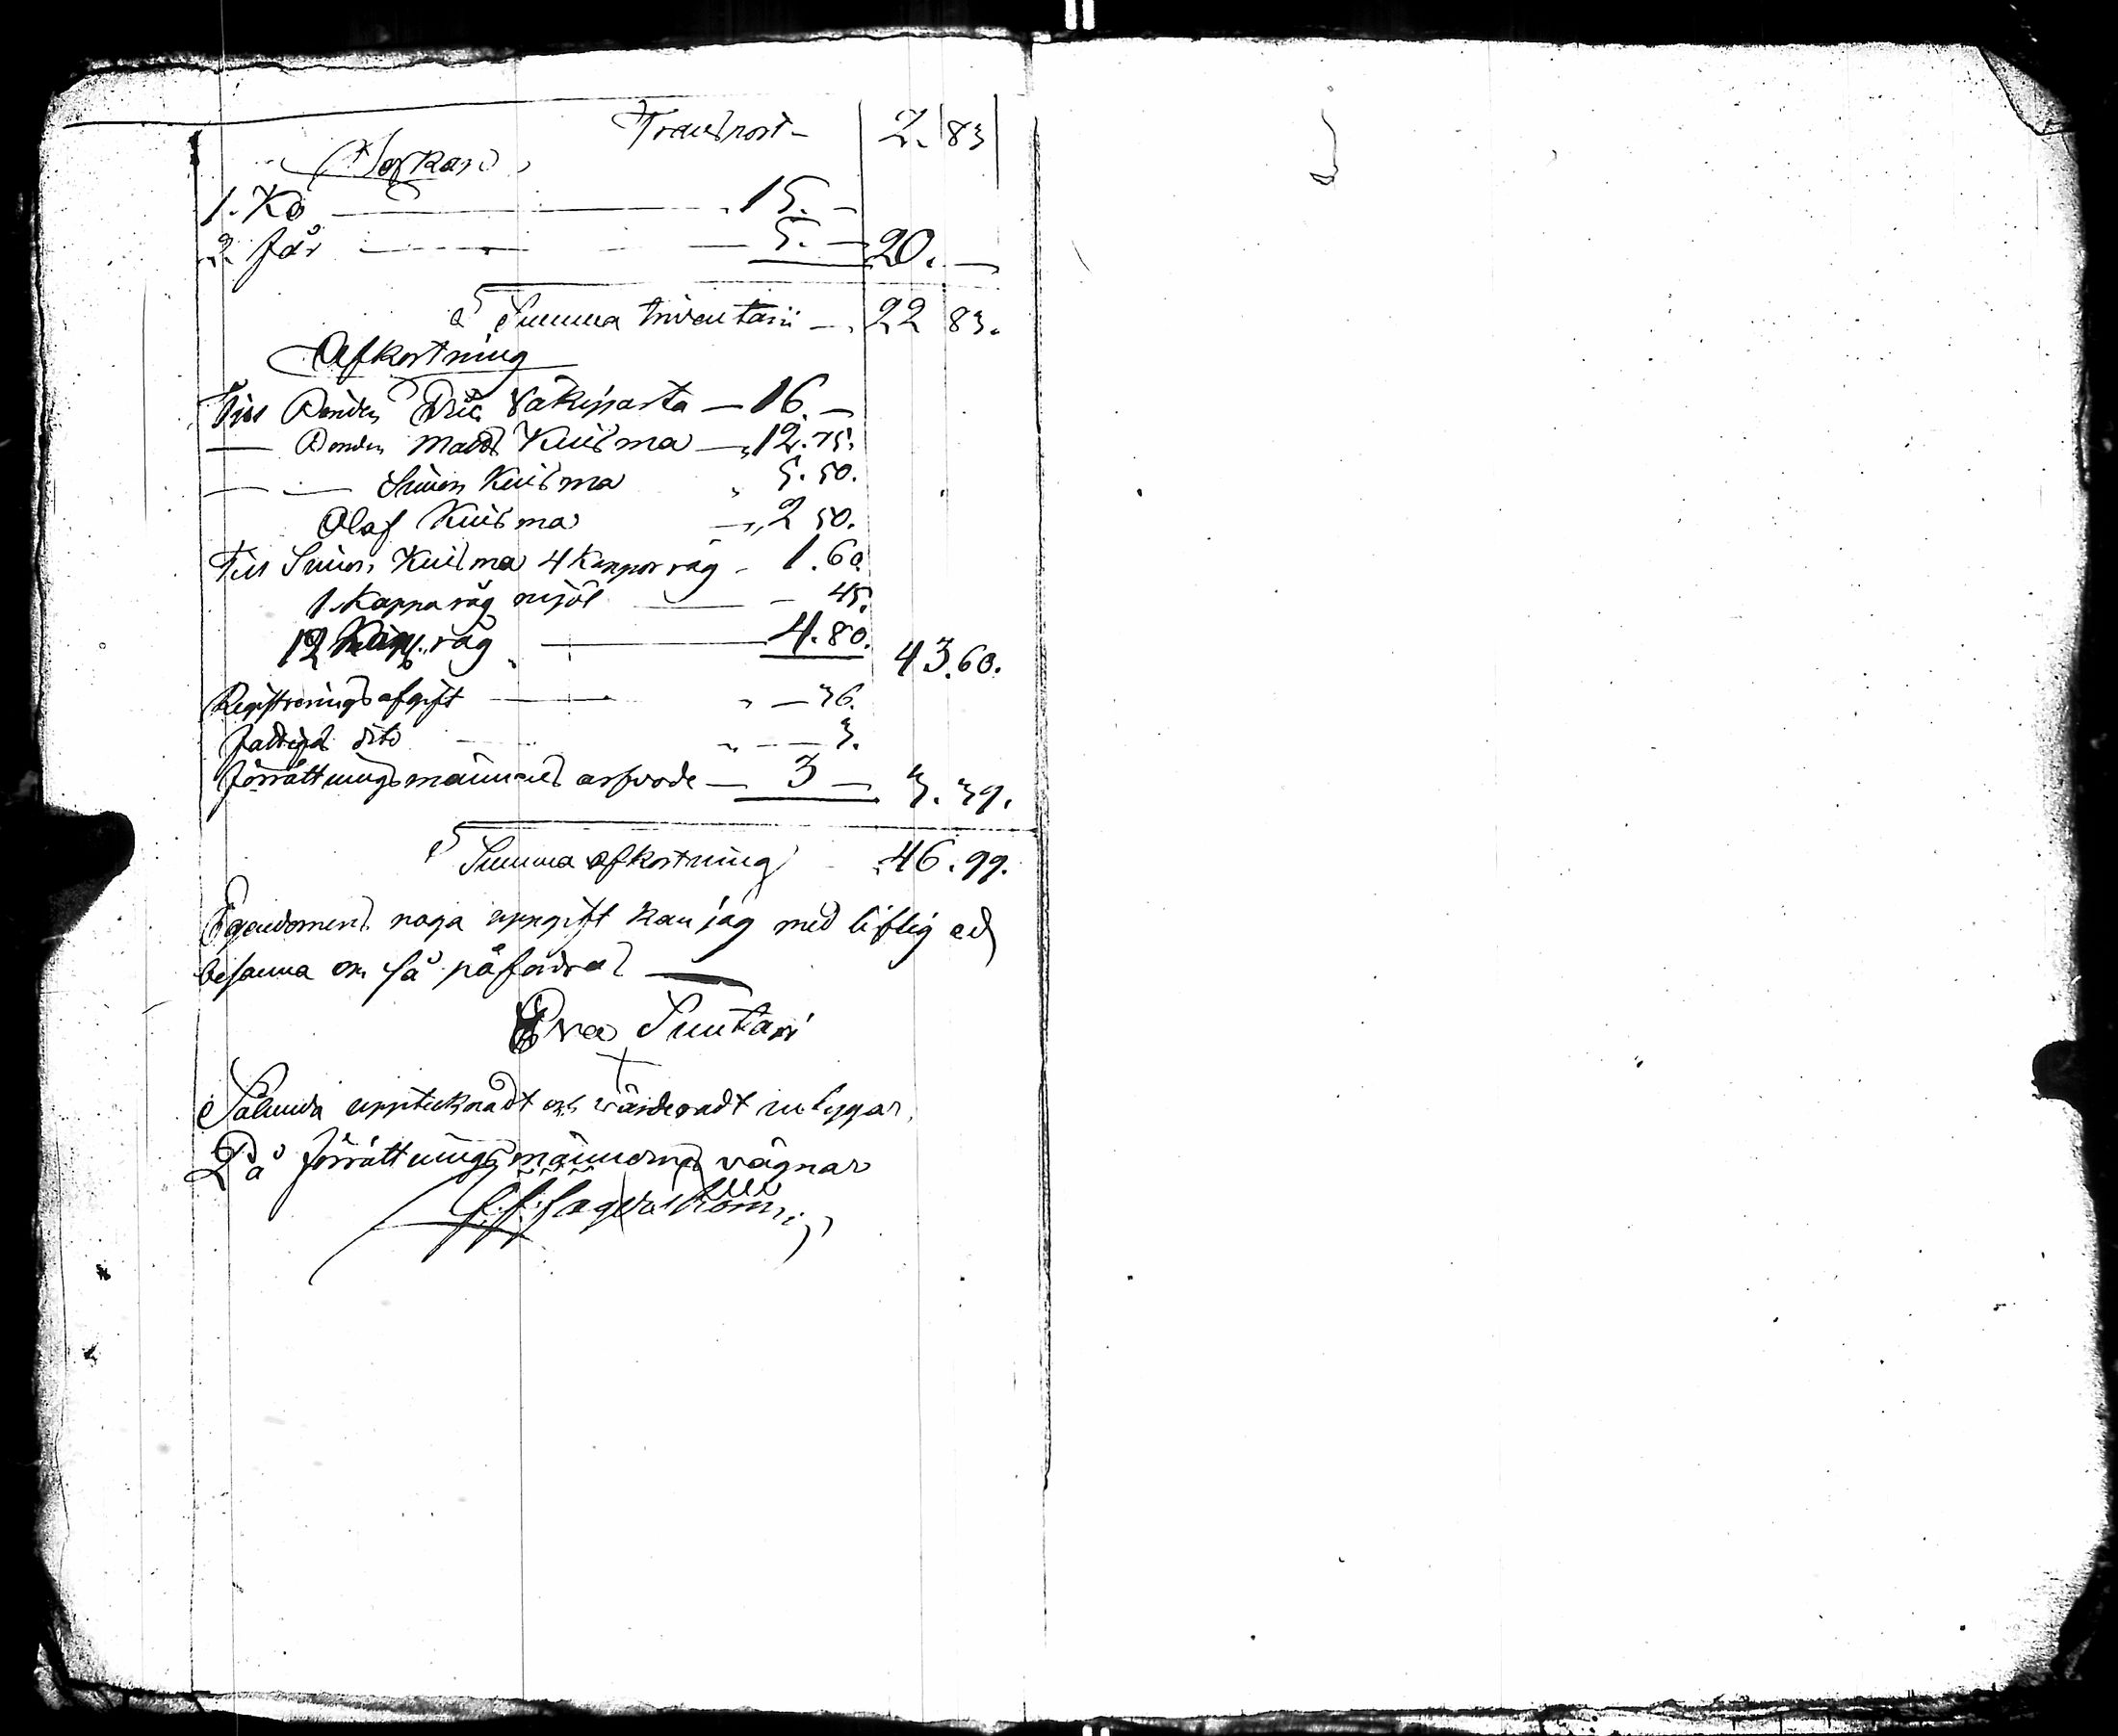 Transport - 2. 83
1. Ko 15. -
2 får 5. - 20. -
Summa Inventarii - 22 83.
Afkortning
Till Bonden Eric Väkiparta - 16. -
Bonden Mats Kuisma - 12.75.
Simon Kuisma 5.50.
Olof Kuisma 2 50.
Till Simon Kuisma 4 Kappor råg - 1.60
1 Kappa råg mjöl - 45.
12 Kapp. råg 4.80. 43.60.
Registreringsafgift - 36.
fattiga dito - 3.
förrättningsmännens arfvode - 3 - 3. 39.
Summa afkortning 46.99.
Egendomens noga uppgift kan jag med liflig ed
besanna om så påfordras
Eva Suutari
Sålunda uppteknadt och värderadt intygar,
På förrättningsmännerns vägnar